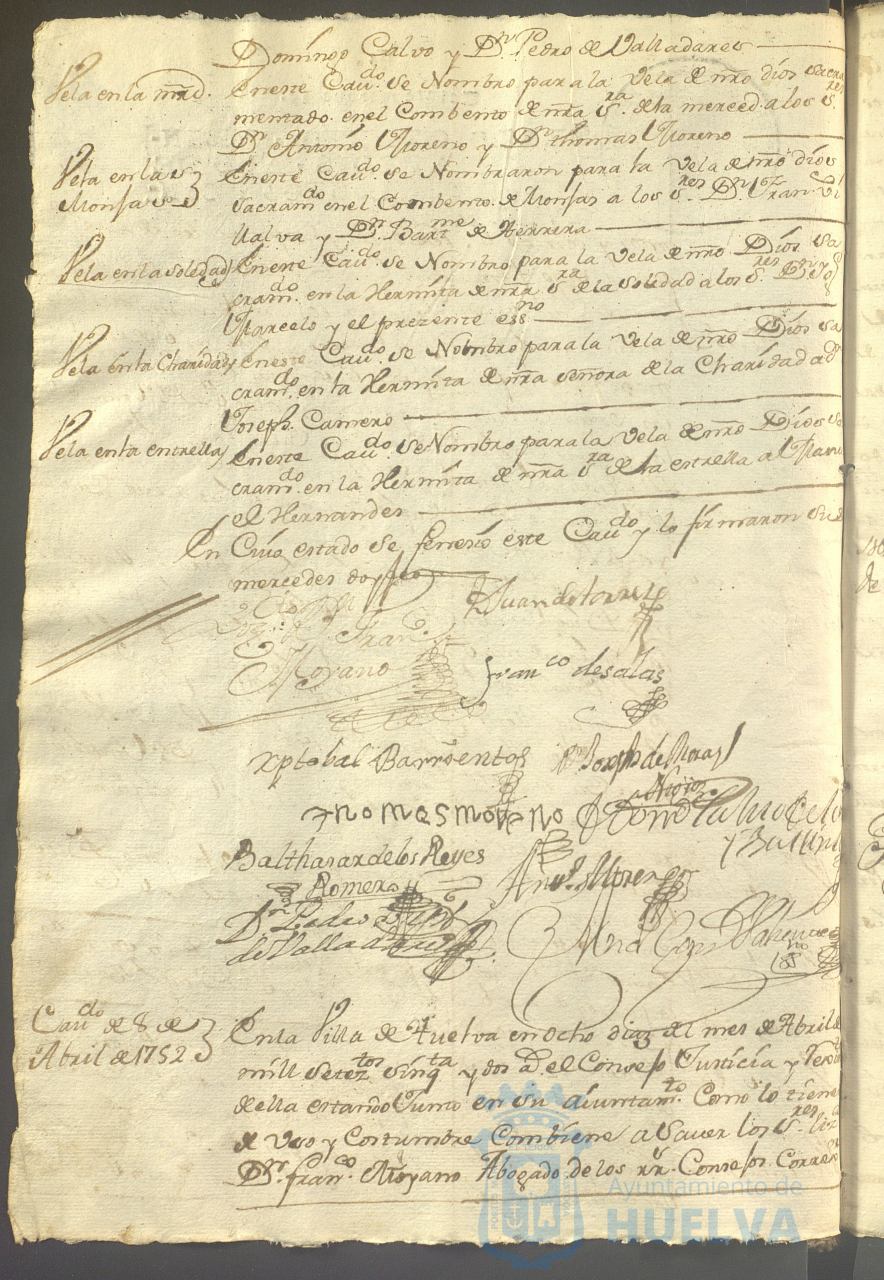 Domingo Calvo y Dn. Pedro de Valladares
Vela en la mrd. Eneste Caudo. se Nombro para la Vela de nro Dios Sacra
mentado. en el Combento de nra Sra. de la merced. a los Sres
Dn. Antonio Moreno y Dn. thomas Moreno
Vela en las Eneste Caudo. se Nombraron para la Vela de nro Dios
Monjas Sacramdo en el Combento. de Monjas a los Sres Dn. Fran
Ualva y Dn. Barme de Herrera
Vela en la soledad Eneste Caudo. se Nombro para la Vela de nro Dios Sa
cramdo. en la Hermita de nra Sra de la Soledad a los Sres
Marcelo y el prezente essno
Vela en la Charidad Eneste Caudo se Nombro para la Vela de nro Dios Sa
cramdo. en la Hermita de nra Señora de la Charidad a
Joseph. Camero
Vela en la entrella Eneste Caudo. se Nombro para la Vela de nro Dios Sa
cramdo. en la Hermita de nra Sra de la estrella a Manu
el Hernandes
En Cuio estado se feneció este Caudo y lo firmaron sus
mercedes doy fee
Juan de torres
Fran.
Moyano
Franco de salas
xptobal Barrientos Dn Joseph de
thomas moreno
Balthasar de los Reyes
Romero
Anto. Moreno
Dn Pedro
de Valladares
Caudo de 8 de En la Villa de Huelva en ocho dias del mes de Abril de
Abril de 1752 mill Seteztos Sinqta y dos as. el Consejo Justicia y
della estando Junto en su aiuntamto. Como lo tiene
de Uso y Costumbre Combiene a Saver los Sres.
Dn. Franco. Moyano Abogado de los rr. Consejos. Corre
Ayuntamiento de
HUELVA